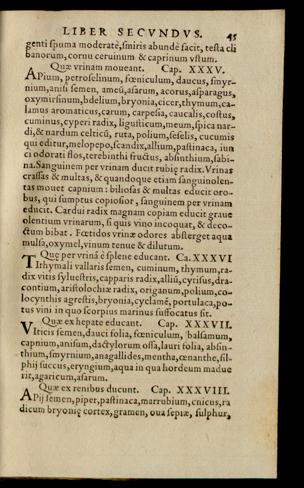 LIBER SECVNDVS. 45
genti spuma moderatè, smiris abundè facit, testa cli
banorum, cornu ceruinum & caprinum vstum.
Quæ vrinam moueant. Cap. XXXV.
APium, petroselinum, fœniculum, daucus, smyr-
nium, anisi semen, ameũ, asarum, acorus, asparagus,
oxymirsinum, bdelium, bryonia, cicer, thymum, ca-
lamus aromaticus, carum, carpesia, caucalis, costus,
cuminus, cyperi radix, ligusticum, meum, spica nar-
di, & nardum celticũ, ruta, polium, seselis, cucumis
qui editur, melopepo, scandix, allium, pastinaca, iun
ci odorati flos, terebinthi fructus, absinthium, sabi-
na. Sanguinem per vrinam ducit rubię radix. Vrinas
crassas & multas, & quandoque etiam sanguinolen-
tas mouet capnium: biliosas & multas educit oro-
bus, qui sumptus copiosior, sanguinem per vrinam
educit. Cardui radix magnam copiam educit graue
olentium vrinarum, si quis vino incoquat, & deco-
ctum bibat. Fœtidos vrinæ odores absterget aqua
mulsa, oxymel, vinum tenue & dilutum.
Quę per vrinā è splene educant. Ca. XXXVI
TIthymali vallaris semen, cuminum, thymum, ra-
dix vitis syluestris, capparis radix, alliũ, cytisus, dra-
contium, aristolochiæ radix, origanum, polium, co-
locynthis agrestis, bryonia, cyclamē, portulaca, po-
tus vini in quo scorpius marinus suffocatus sit.
Quæ ex hepate educant. Cap. XXXVII.
VIticis semen, dauci folia, fœniculum, balsamum,
capnium, anisum, dactylorum ossa, lauri folia, absin-
thium, smyrnium, anagallides, mentha, œnanthe, sil-
phij succus, eryngium, aqua in qua hordeum madue
rit, agaricum, asarum.
Quæ ex renibus ducunt. Cap. XXXVIII.
APij semen, piper, pastinaca, marrubium, cnicus, ra
dicum bryonię cortex, gramen, oua sepiæ, sulphur,